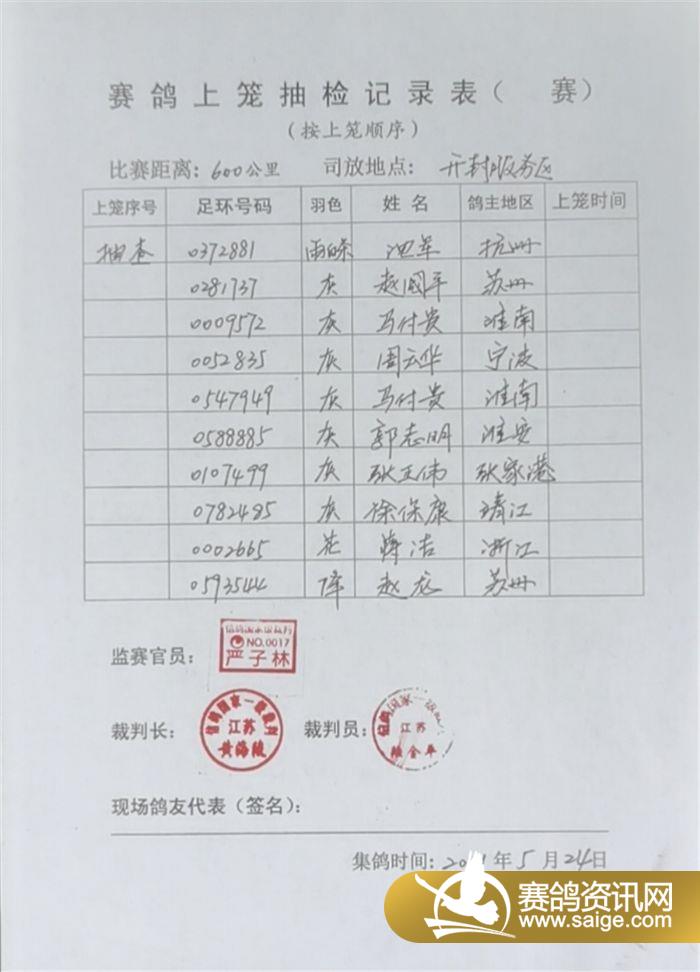 赛鸽上笼抽检记录表( 赛)
(按上笼顺序)
比赛距离: 600公里 司放地点: 开封服务区
上笼序号 足环号码 羽色 姓名 鸽主地区 上笼时间
抽查 0372881 雨 池军 杭州
0281737 灰 赵国平 苏州
0009572 灰 马付贵 淮南
0052835 灰 周云华 宁波
0547949 灰 马付贵 淮南
0588885 灰 郭志明 淮安
0107499 灰 张正伟 张家港
0782495 灰 徐保康 靖江
0002665 花 洁 浙江
0593544 赵龙 苏州
监赛官员:
NO.0017
严子林
裁判长: 信鸽国家一级裁判 江苏 黄海陵
裁判员: 信鸽国家一级 江苏 金
现场鸽友代表(签名):
集鸽时间: 年5月24日
赛鸽资讯网
www.saige.com